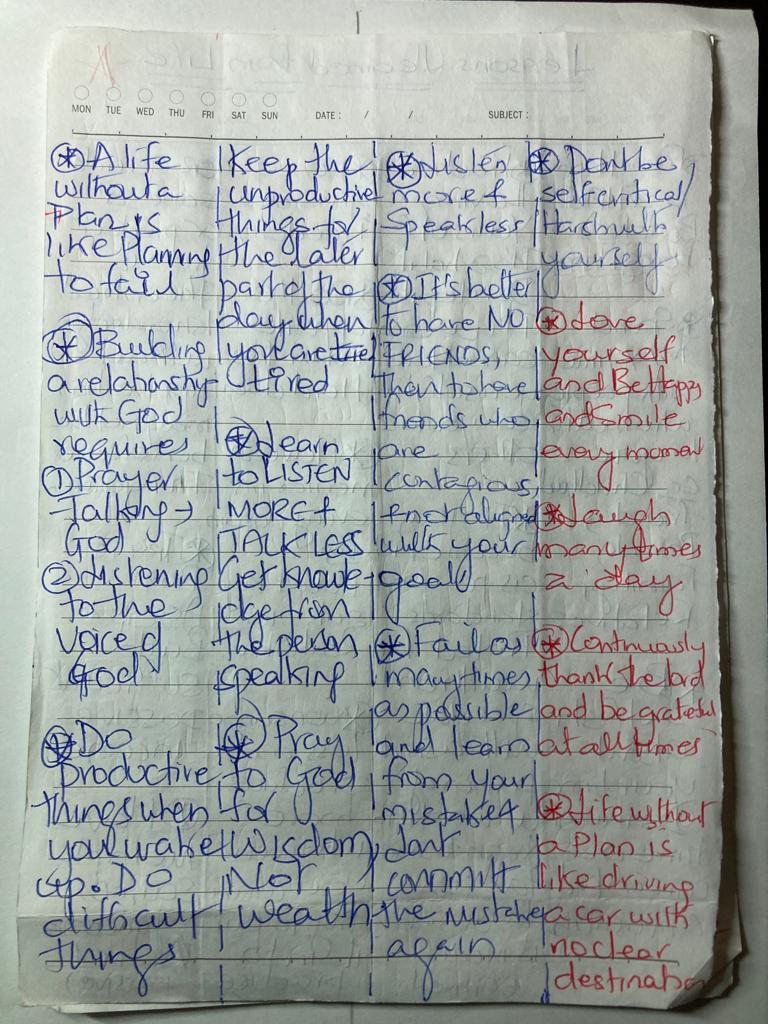 MON TUE WED THU FRI SAT SUN DATE: / / SUBJECT:
* A life
without a
Plan is
like Planning
to fail
* Building
a relationship
with God
requires
① Prayer
Talking →
God
② Listening
to the
voice of
God
* Do
productive
things when
you wake
up. Do
difficult
things
Keep the
unproductive
things for
the later
part of the
day when
you are
tired
* Learn
to LISTEN
MORE +
TALK LESS
Get knowle-
dge from
the person
speaking
* Pray
to God
for
Wisdom,
Not
wealth
* Listen
more +
Speak less
* It's better
to have NO
FRIENDS,
than to have
friends who
are
contagious,
+ not aligned
with your
goal
* Fail as
many times
as possible
and learn
from your
mistake +
dont
commit
the mistake
again
* Dont be
self critical/
Harsh with
yourself
* Love
yourself
and Be Happy
and Smile
every moment
* Laugh
many times
a day
* Continuously
thank the lord
and be grateful
at all times
* Life without
a Plan is
like driving
a car with
no clear
destination